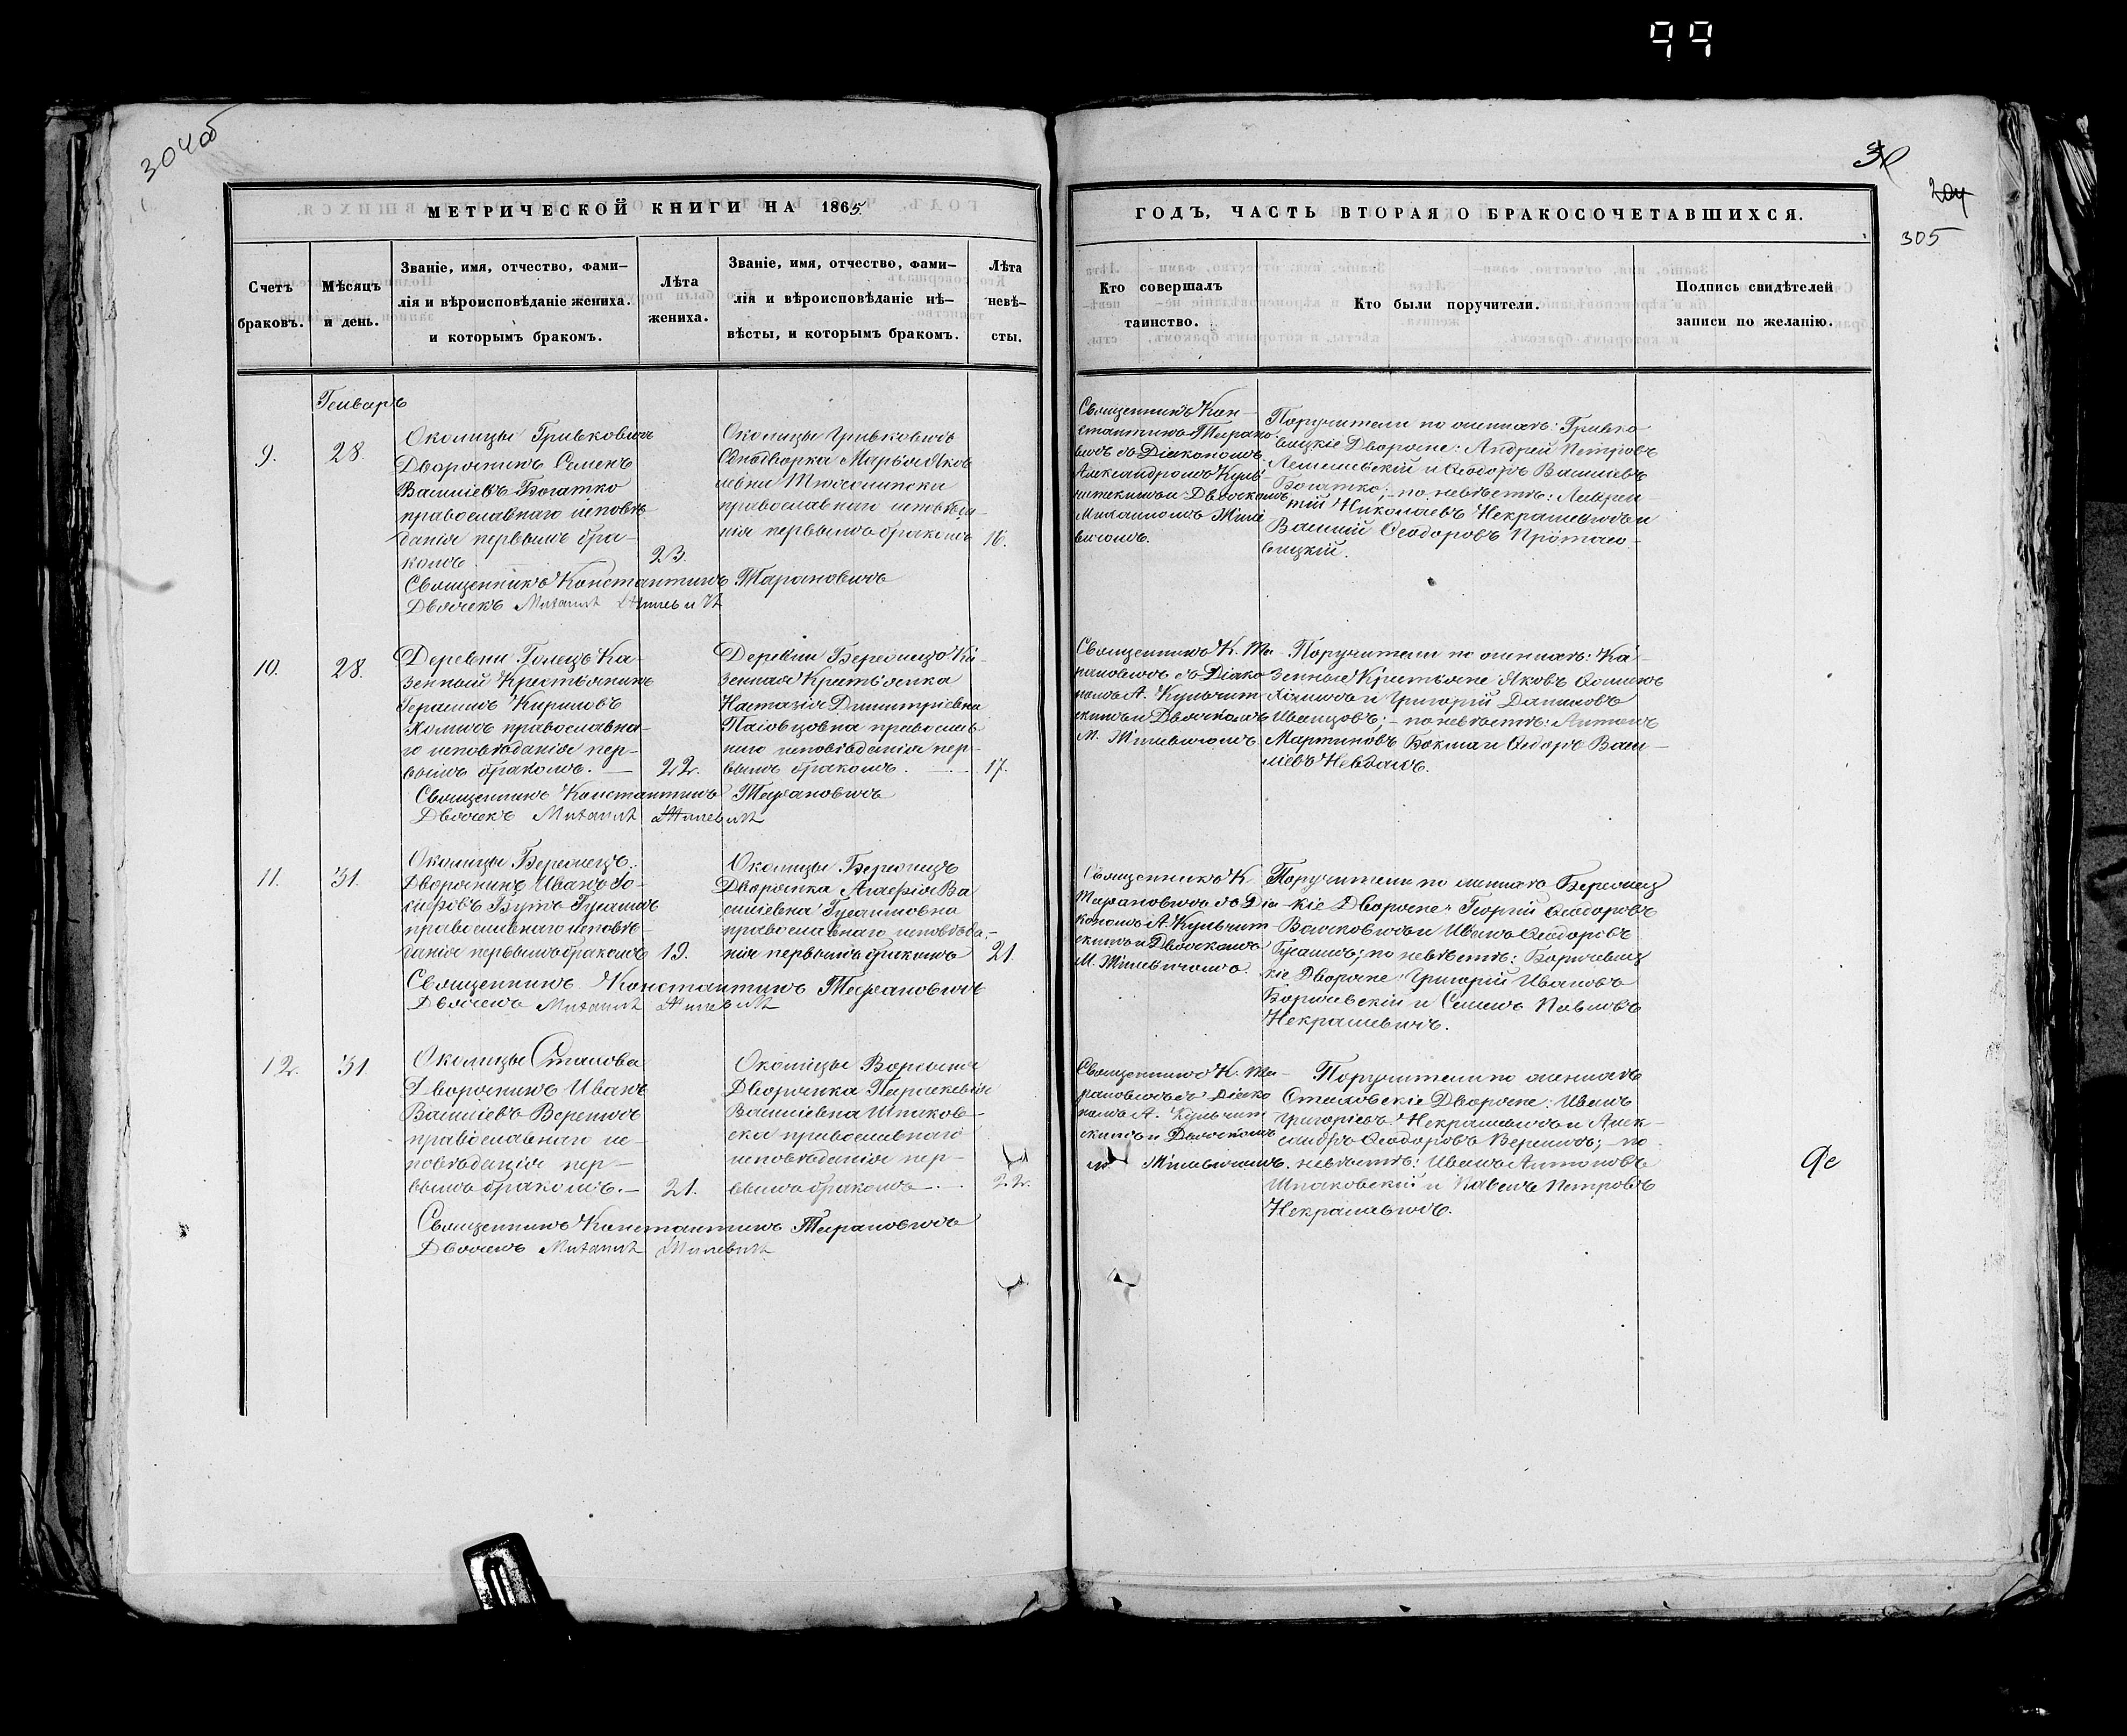 99
304об
305
МЕТРИЧЕСКОЙ КНИГИ НА 1865.
Счетъ браковъ.
Мѣсяцъ и день.
Званіе, имя, отчество, фами-
лія и вѣроисповѣданіе жениха.
и которымъ бракомъ.
Лѣта жениха.
Званіе, имя, отчество, фами-
лія и вѣроисповѣданіе нѣ-
вѣсты, и которымъ бракомъ.
Лѣта невѣ-
сты.
Генварь
9.
28.
Околицы Гривковичъ
Дворянинъ Семенъ
Василіевъ Богатко
православнаго исповѣ-
данія первымъ бра-
комъ
23.
Околицы Гривковичъ
Однодворка Марья Яков
левна
православнаго исповѣда-
нія первымъ бракомъ
16.
Священникъ Константинъ Тарановичъ
Дьячекъ Михаилъ Жилевичъ
10.
28.
Деревни Голецъ Ка-
зенный Крестьянинъ
Герасимъ Кириловъ
Хомичъ православна-
го исповѣданія пер-
вымъ бракомъ.
22.
Деревни Бережицо Ка-
зенная Крестьянка
Настазія Димитріевна
православ-
наго исповѣданія пер-
вымъ бракомъ.
17.
Священникъ Константинъ Тарановичъ
Дьячекъ Михаилъ Жилевичъ
11.
31.
Околицы
Дворянинъ Иванъ Іо-
сифовъ Бутъ Гусаимъ
православнаго исповѣ-
данія первымъ бракомъ
19.
Околицы
Дворянка Агафія Ва
силіевна Гусаимовна
православнаго исповѣда-
нія первымъ бракомъ
21.
Священникъ Константинъ Тарановичъ
Дьячекъ Михаилъ Жилевичъ
12.
31.
Околицы Стахова
Дворянинъ Иванъ
Василіевъ Вереничъ
православнаго ис-
повѣданія пер-
вымъ бракомъ.
21.
Околицы
Дворянка Параскевія
Василіевна Шпаков-
ска православнаго
исповѣданія пер-
вымъ бракомъ
22.
Священникъ Константинъ Тарановичъ
Дьячекъ Михаилъ Жилевичъ
ГОДЪ, ЧАСТЬ ВТОРАЯ О БРАКОСОЧЕТАВШИХСЯ.
Кто совершалъ
таинство.
Кто были поручители.
Подпись свидѣтелей
записи по желанію.
Священникъ Кон-
стантинъ Тарано
вичъ съ Діакономъ
Александромъ Куль-
читскимъ и Дьячкомъ
Михаиломъ Жиле
вичомъ.
Поручители по женихѣ: Гривко
вицкіе Дворяне: Андрей Петровъ
и Ѳеодоръ Василіевъ
Богатко; по невѣстѣ:
Николаевъ Некрашевичъ и
Василій Ѳеодоровъ Протасо-
вицкій.
Священникъ К. Та-
рановичъ съ Діако
номъ А. Кульчит
скимъ и Дьячкомъ
М. Жилевичомъ.
Поручители по женихѣ: Ка-
зенные Крестьяне Яковъ
Хомичъ и Григорій Даниловъ
Иванцовъ; по невѣстѣ: Антонъ
Мартиновъ и Ѳедоръ Васи-
ліевъ
Священникъ К.
Тарановичъ съ Діа
кономъ А. Кульчит
скимъ и Дьячкомъ
М. Жилевичомъ.
Поручители по женихѣ
кіе Дворяне: Георгій Ѳеодоровъ
и Иванъ Ѳеодоровъ
Гусаимъ; по невѣстѣ: Боричевиц
кіе Дворяне: Григорій Ивановъ
Боричевскій и Семенъ Павловъ
Некрашевичъ.
Священникъ К. Та-
рановичъ съ Діако
номъ А. Кульчит
скимъ и Дьячкомъ
М. Жилевичомъ.
Поручители по женихѣ
Стаховскіе Дворяне: Иванъ
Григоріевъ Некрашевичъ и Алек-
сандръ Ѳеодоровъ Вереничъ; по
невѣстѣ: Иванъ Антоновъ
Шпаковскій и Павелъ Петровъ
Некрашевичъ.